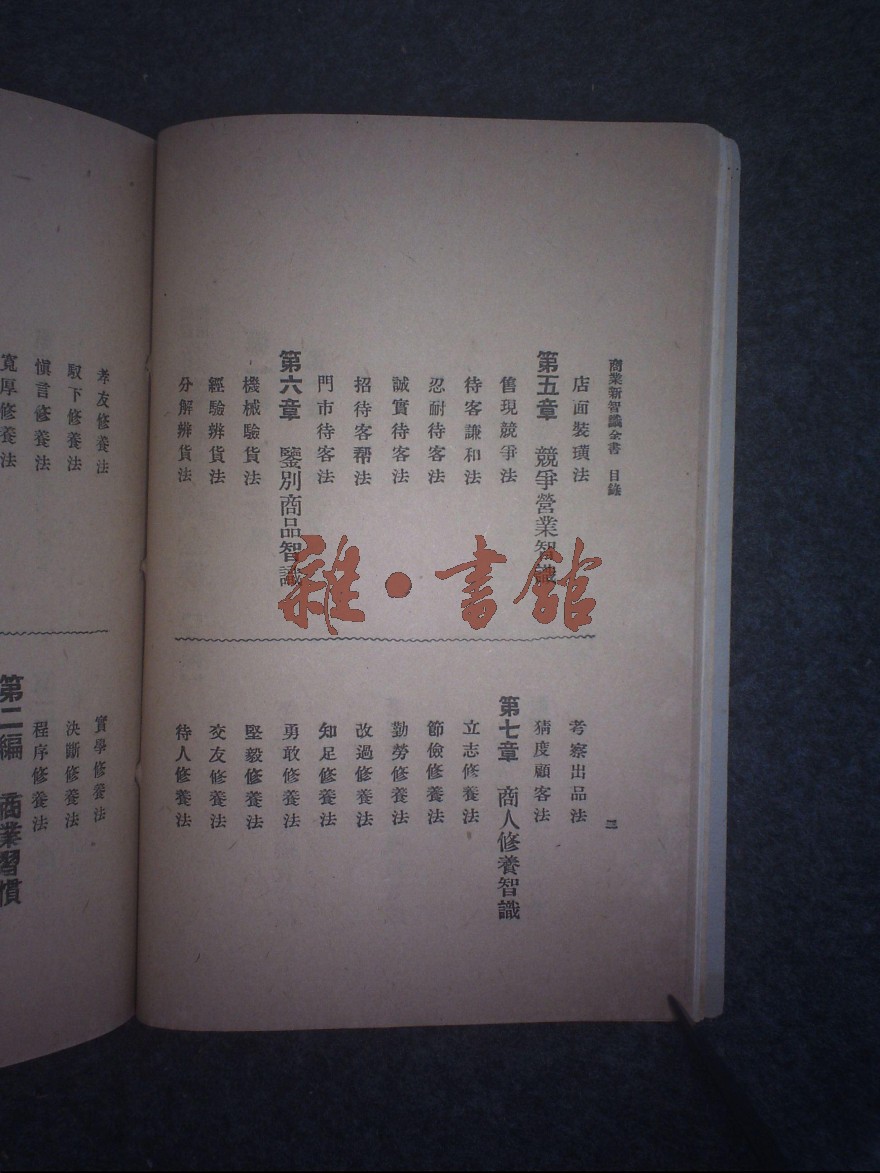 商業新智識全書 目錄
店面裝璜法
第五章 競爭營業智識
售現競爭法
待客謙和法
忍耐待客法
誠實待客法
招待客帮法
門市待客法
第六章 鑒別商品智識
機械驗貨法
經驗辨貨法
分解辨貨法
考察出品法
猜度顧客法
第七章 商人修養智識
立志修養法
節儉修養法
勤勞修養法
改過修養法
知足修養法
勇敢修養法
堅毅修養法
交友修養法
待人修養法
三
孝友修養法
馭下修養法
愼言修養法
寬厚修養法
實學修養法
決斷修養法
程序修養法
第二編 商業習慣
雜·書館